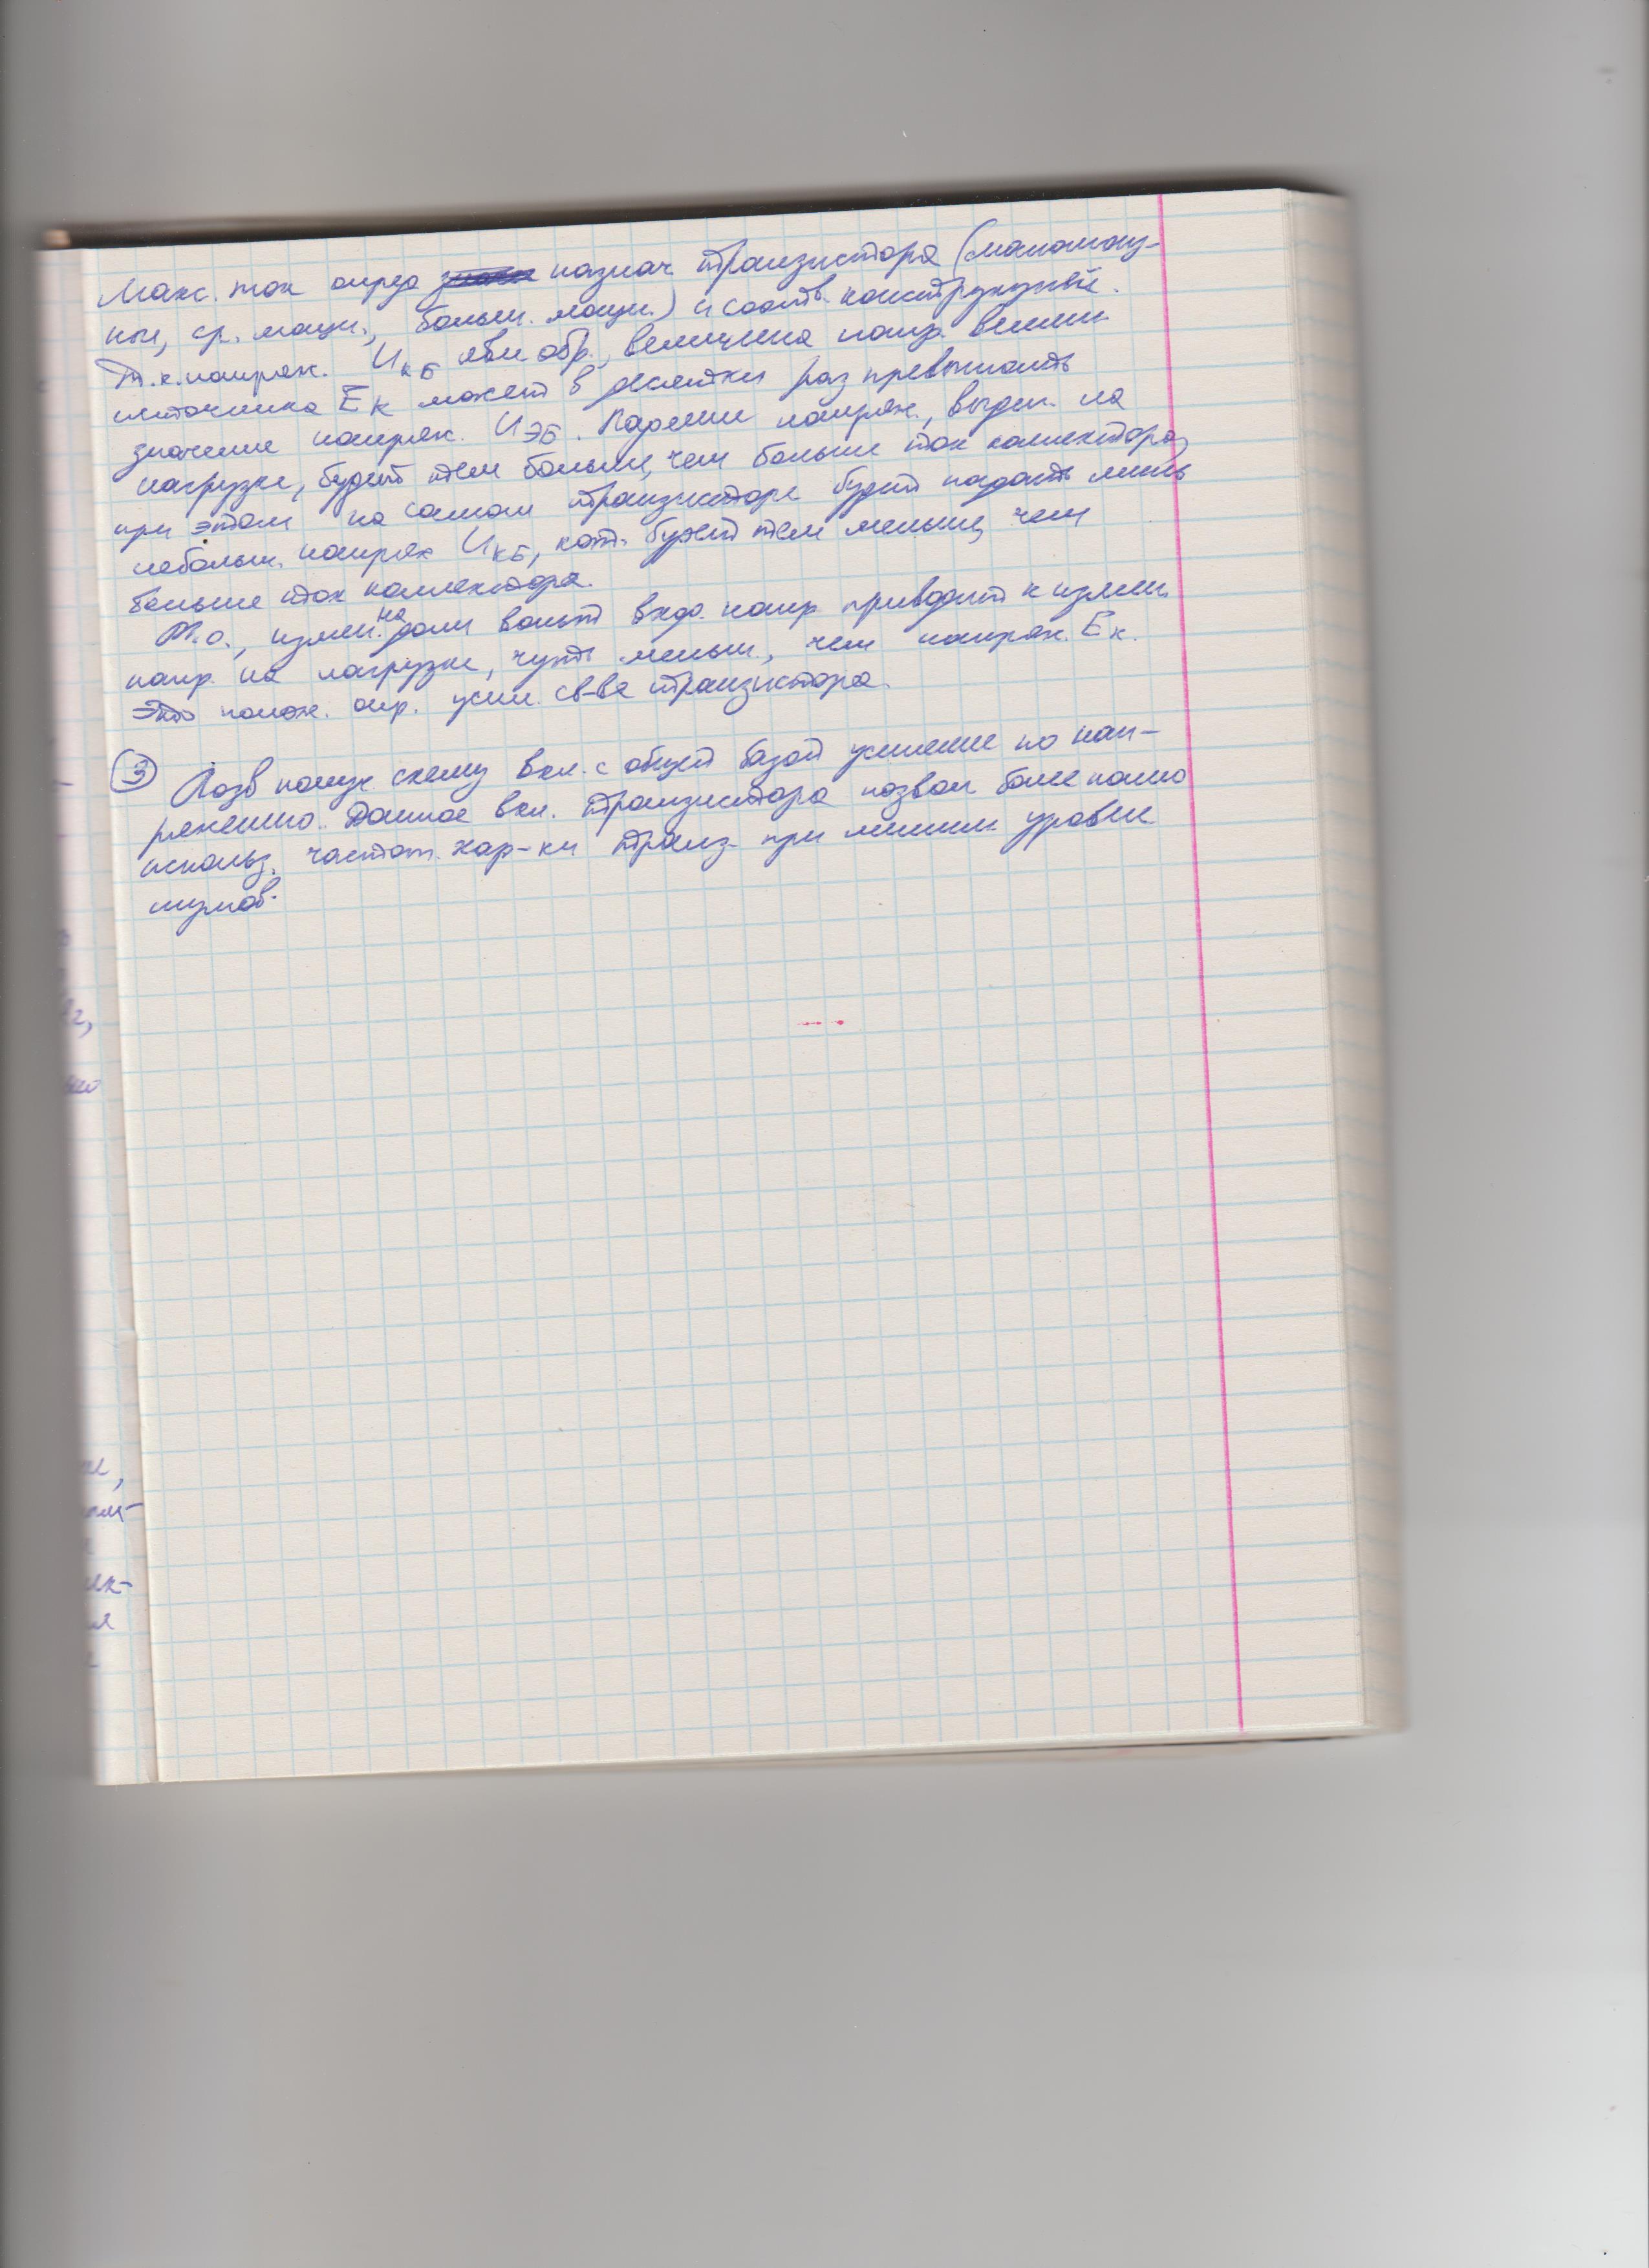 Макс. ток опред назнач транзистора (маломощ-
ные, ср. мощн., больш. мощн.) и соотв. конструкцией.
Т.к. напряж. UКБ явл обр., величина напр. внешн
источника EК может в десятки раз превышать
значение напряж. UЭБ. Падение напряж., выдел. на
нагрузке, будет тем больше, чем больше ток коллектора,
при этом на самом транзисторе будет падать лишь
небольш. напряж UКБ, кот. будет тем меньше, чем
больше ток коллектора.
Т.о., измен. на доли вольт вход. напр. приводит к измен.
напр. на нагрузке, чуть меньш., чем напряж. EК.
Это полож. опр. усил. св-ва транзистора.
③ Позв получ схему вкл. с общей базой усиление по нап-
ряжению. Данное вкл. транзистора позвол более полно
использ. частот. хар-ки транз. при миним уровне
шумов.